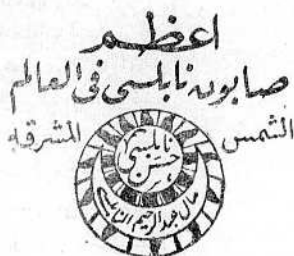 اعظم
صابون نابلسى فى العالم
الشمس المشرقه
نابلسى
حسن
مال عبد الرحيم النابلسى